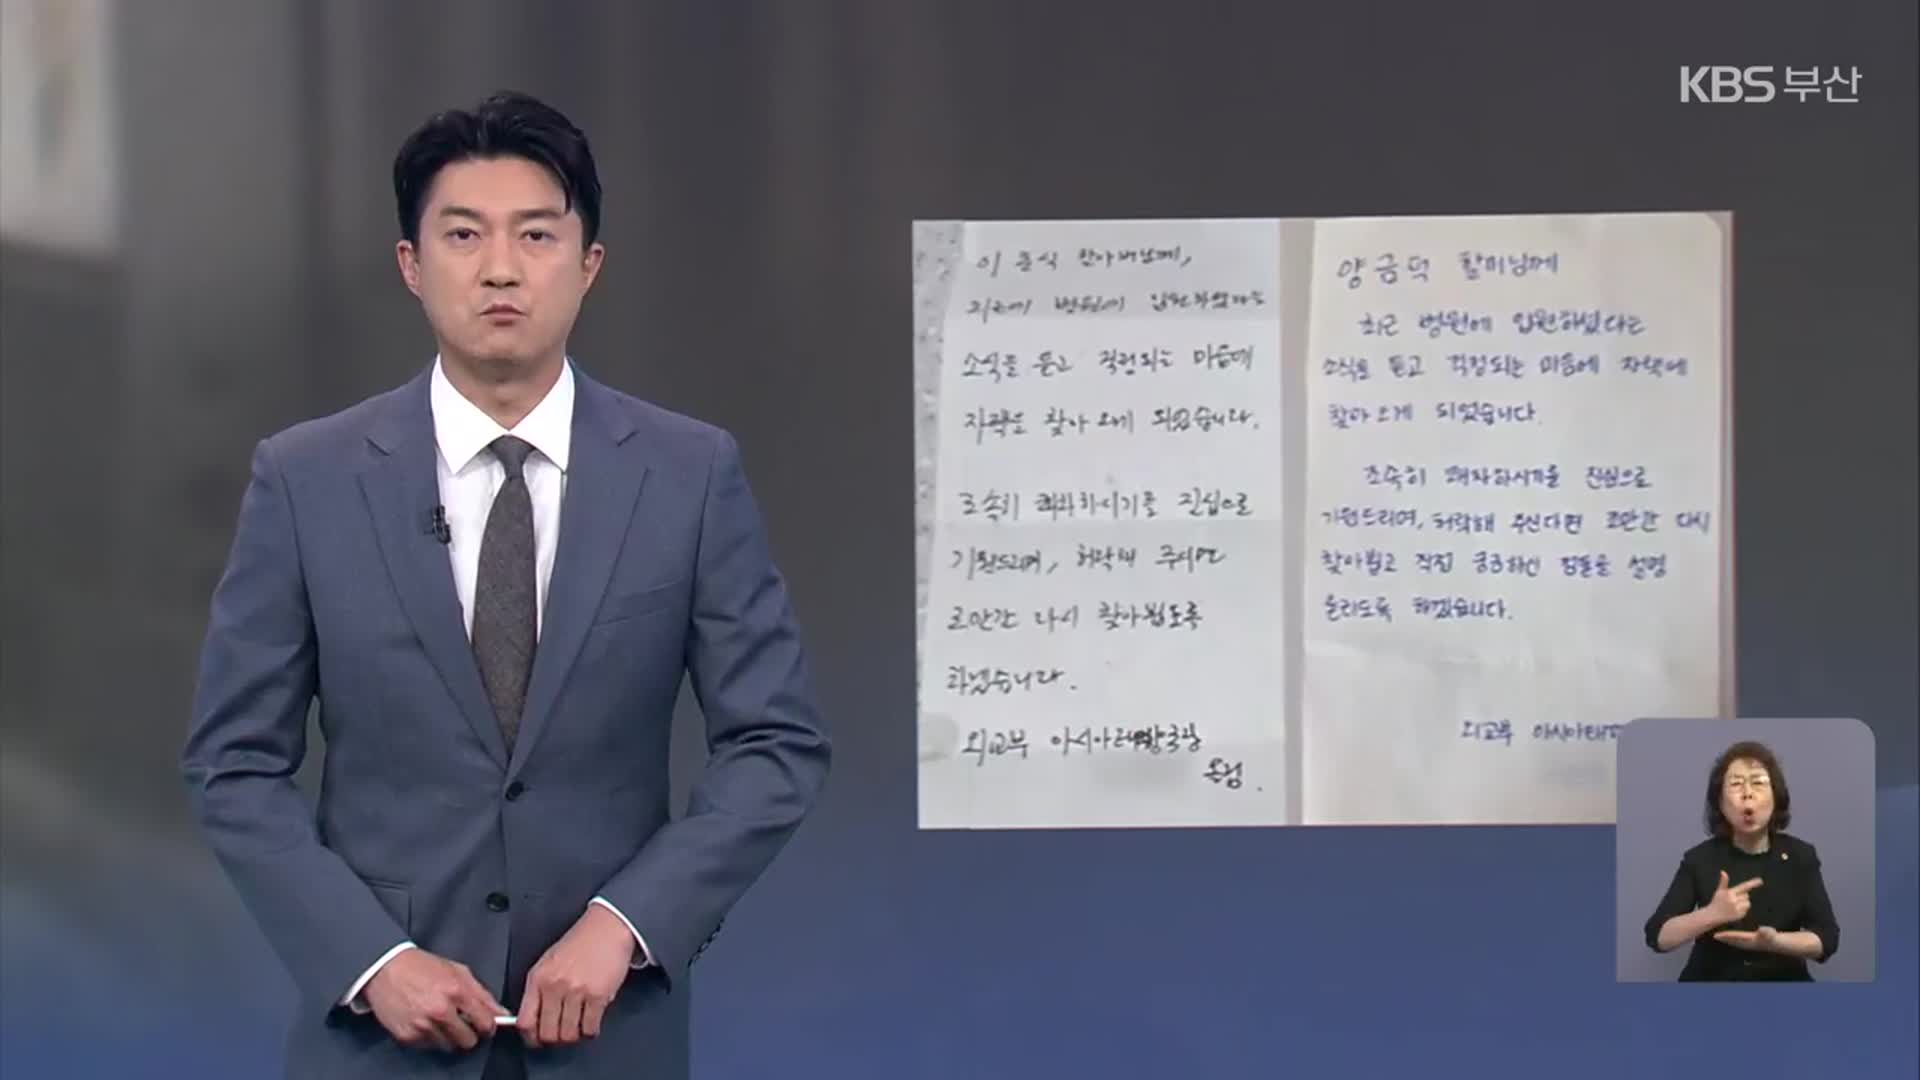 KBS 부산
이춘식 할아버님께,
최근에 병원에 입원하셨다는
소식을 듣고 걱정되는 마음에
자택으로 찾아오게 되었습니다.
조속히 쾌차하시기를 진심으로
기원드리며, 허락해 주시면
조만간 다시 찾아뵙도록
하겠습니다.
외교부 아시아태평양국장
올림.
양금덕 할머님께
최근 병원에 입원하셨다는
소식을 듣고 걱정되는 마음에 자택에
찾아오게 되었습니다.
조속히 쾌차하시기를 진심으로
기원드리며, 허락해 주신다면 조만간 다시
찾아뵙고 직접 궁금하신 점들을 설명
올리도록 하겠습니다.
외교부 아시아태평